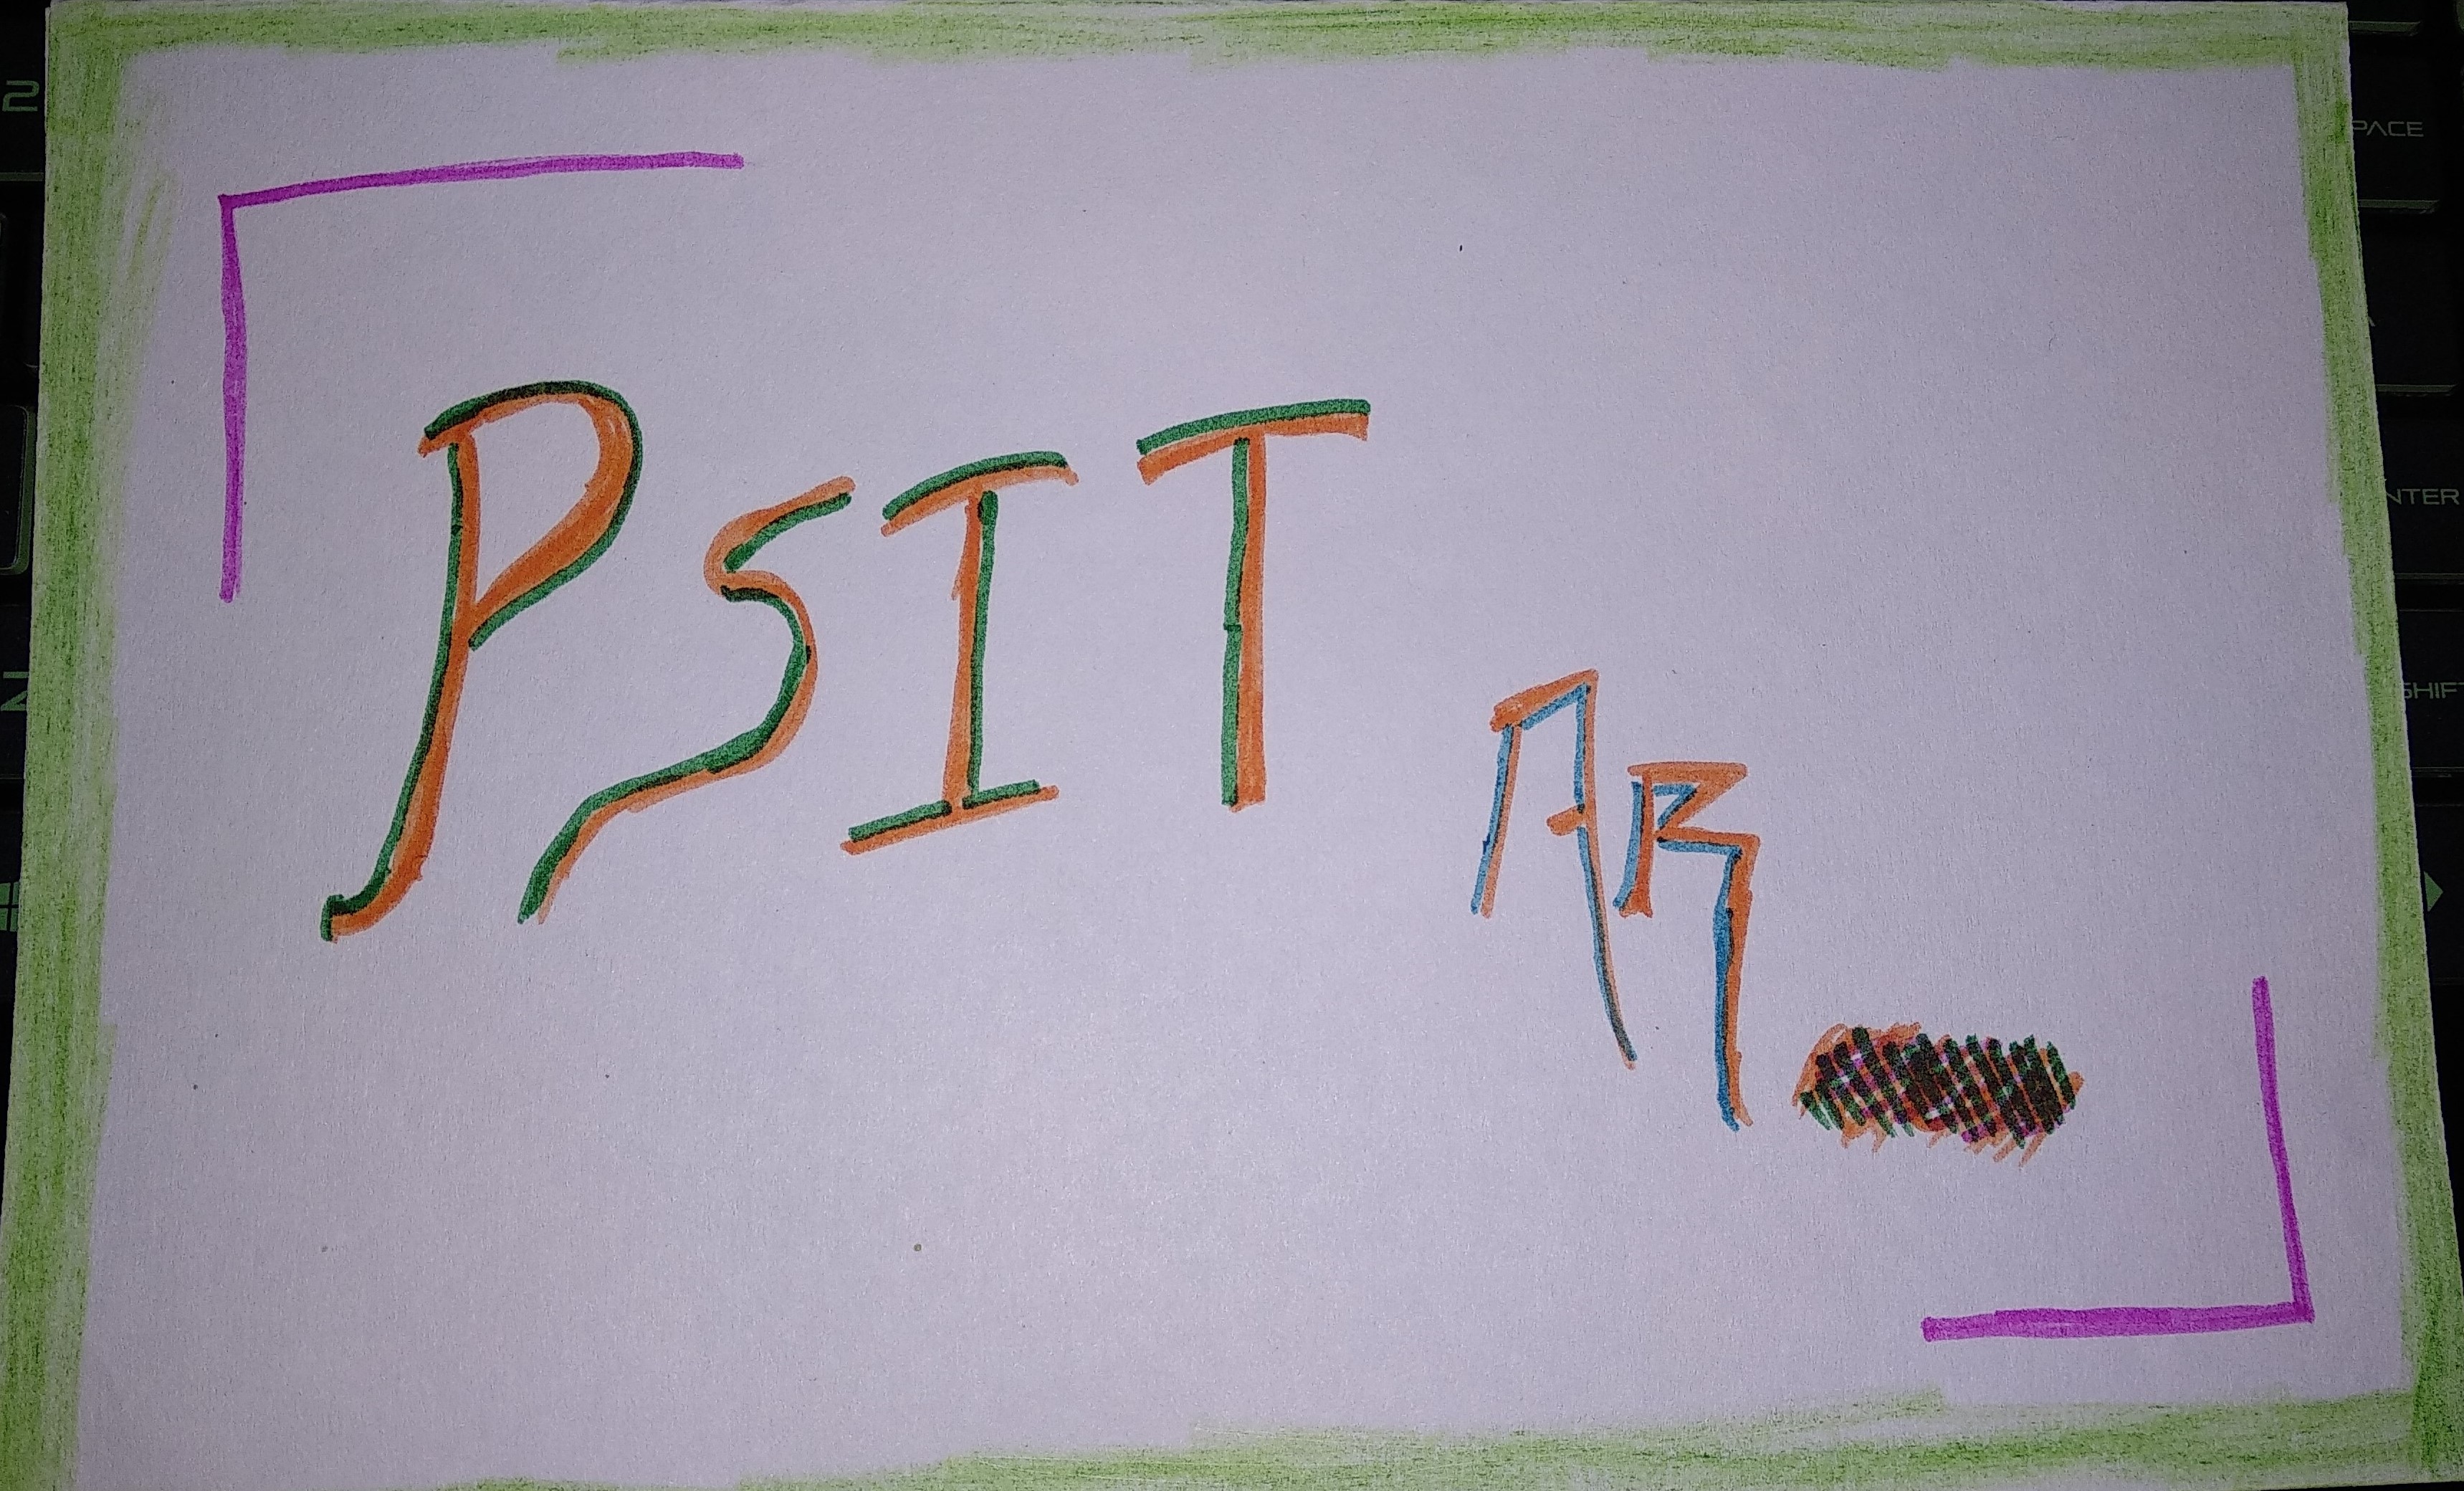 PSIT
AR
2
PACE
NTER
Z
SHIFT